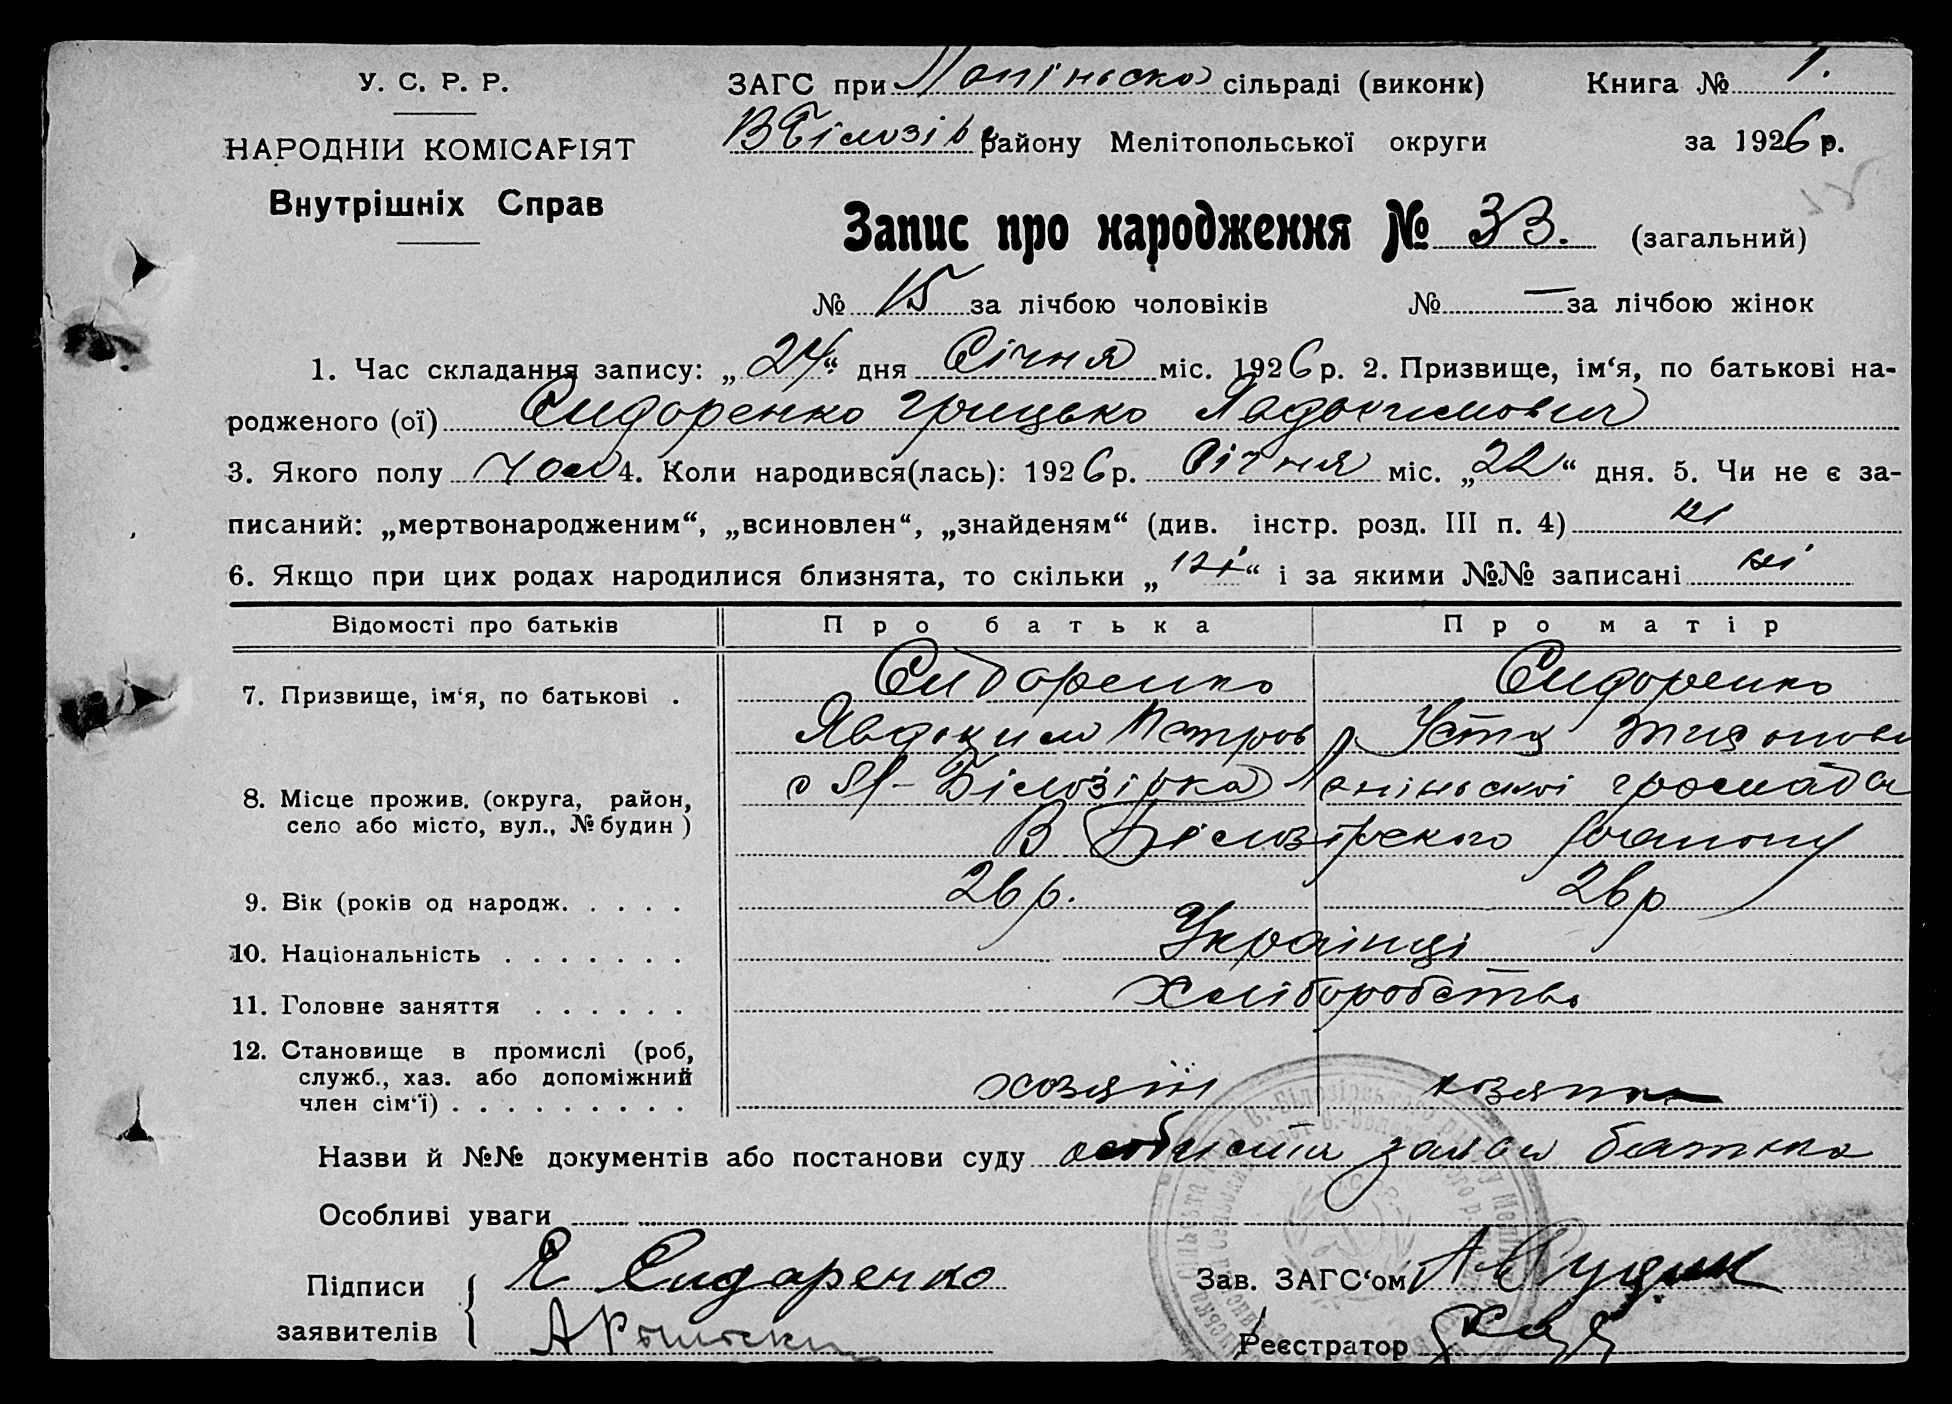 У. С. Р. Р.
НАРОДНІИ КОМІСАРІЯТ
Внутрішніх Справ
ЗАГС при сільраді (виконк) Книга № 1.
В Білозір району Мелітопольської округи за 1926 р.
Запис про народження № 33. (загальний)
№ 15 за лічбою чоловіків № — за лічбою жінок
1. Час складання запису: „24“ дня Січня міс. 1926 р. 2. Призвище, ім‘я, по батькові на-
родженого (ої) Сидоренко Грицько Явдокимович
3. Якого полу чол 4. Коли народився(лась): 1926 р. Січня міс. „22“ дня. 5. Чи не є за-
писаний: „мертвонародженим“, „всиновлен“, „знайденям“ (див. інстр. розд. III п. 4) ні
6. Якщо при цих родах народилися близнята, то скільки „ні“ і за якими №№ записані ні
Відомості про батьків Про батька Про матір
7. Призвище, ім‘я, по батькові . Сидоренко Сидоренко
Явдоким Петров Устя
8. Місце прожив. (округа, район, Білозірка громада
село або місто, вул., № будин ) В Білозірского району
9. Вік (років од народж. . . . . . 26 р. 26 р
10. Національність . . . . . . . Українці
11. Головне заняття . . . . . . Хліборобство
12. Становище в промислі (роб,
служб., хаз. або допоміжний хозяїн
член сім‘ї) . . . . . . . . .
Назви й №№ документів або постанови суду особиста заява батька
Особливі уваги
Підписи Я Сидоренко Зав. ЗАГС‘ом
заявителів Реєстратор